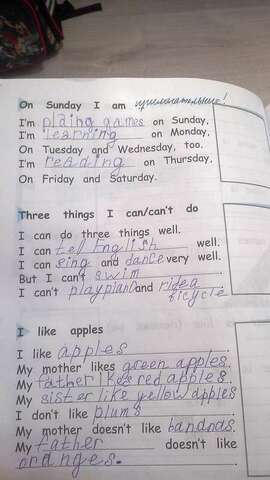 On Sunday I am прилагательные!
I'm plaing games on Sunday,
I'm learning on Monday,
On Tuesday and Wednesday, too.
I'm reading on Thursday,
On Friday and Saturday.
Three things I can/can't do
I can do three things well.
I can tell English well.
I can sing and dance very well.
But I can't swim
I can't play piano and ride a
bicycle
I like apples
I like apples.
My mother likes green apples.
My father likes red apples.
My sister like yellow apples
I don't like plums.
My mother doesn't like bananas.
My father doesn't like
oranges.